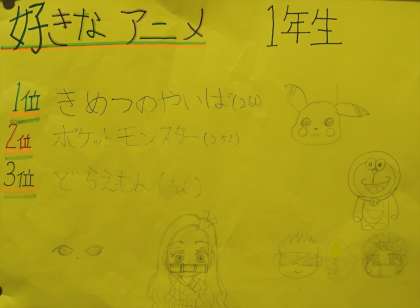 好きな アニメ
1年生
1位 きめつのやいば
2位 ポケットモンスター
3位 どらえもん